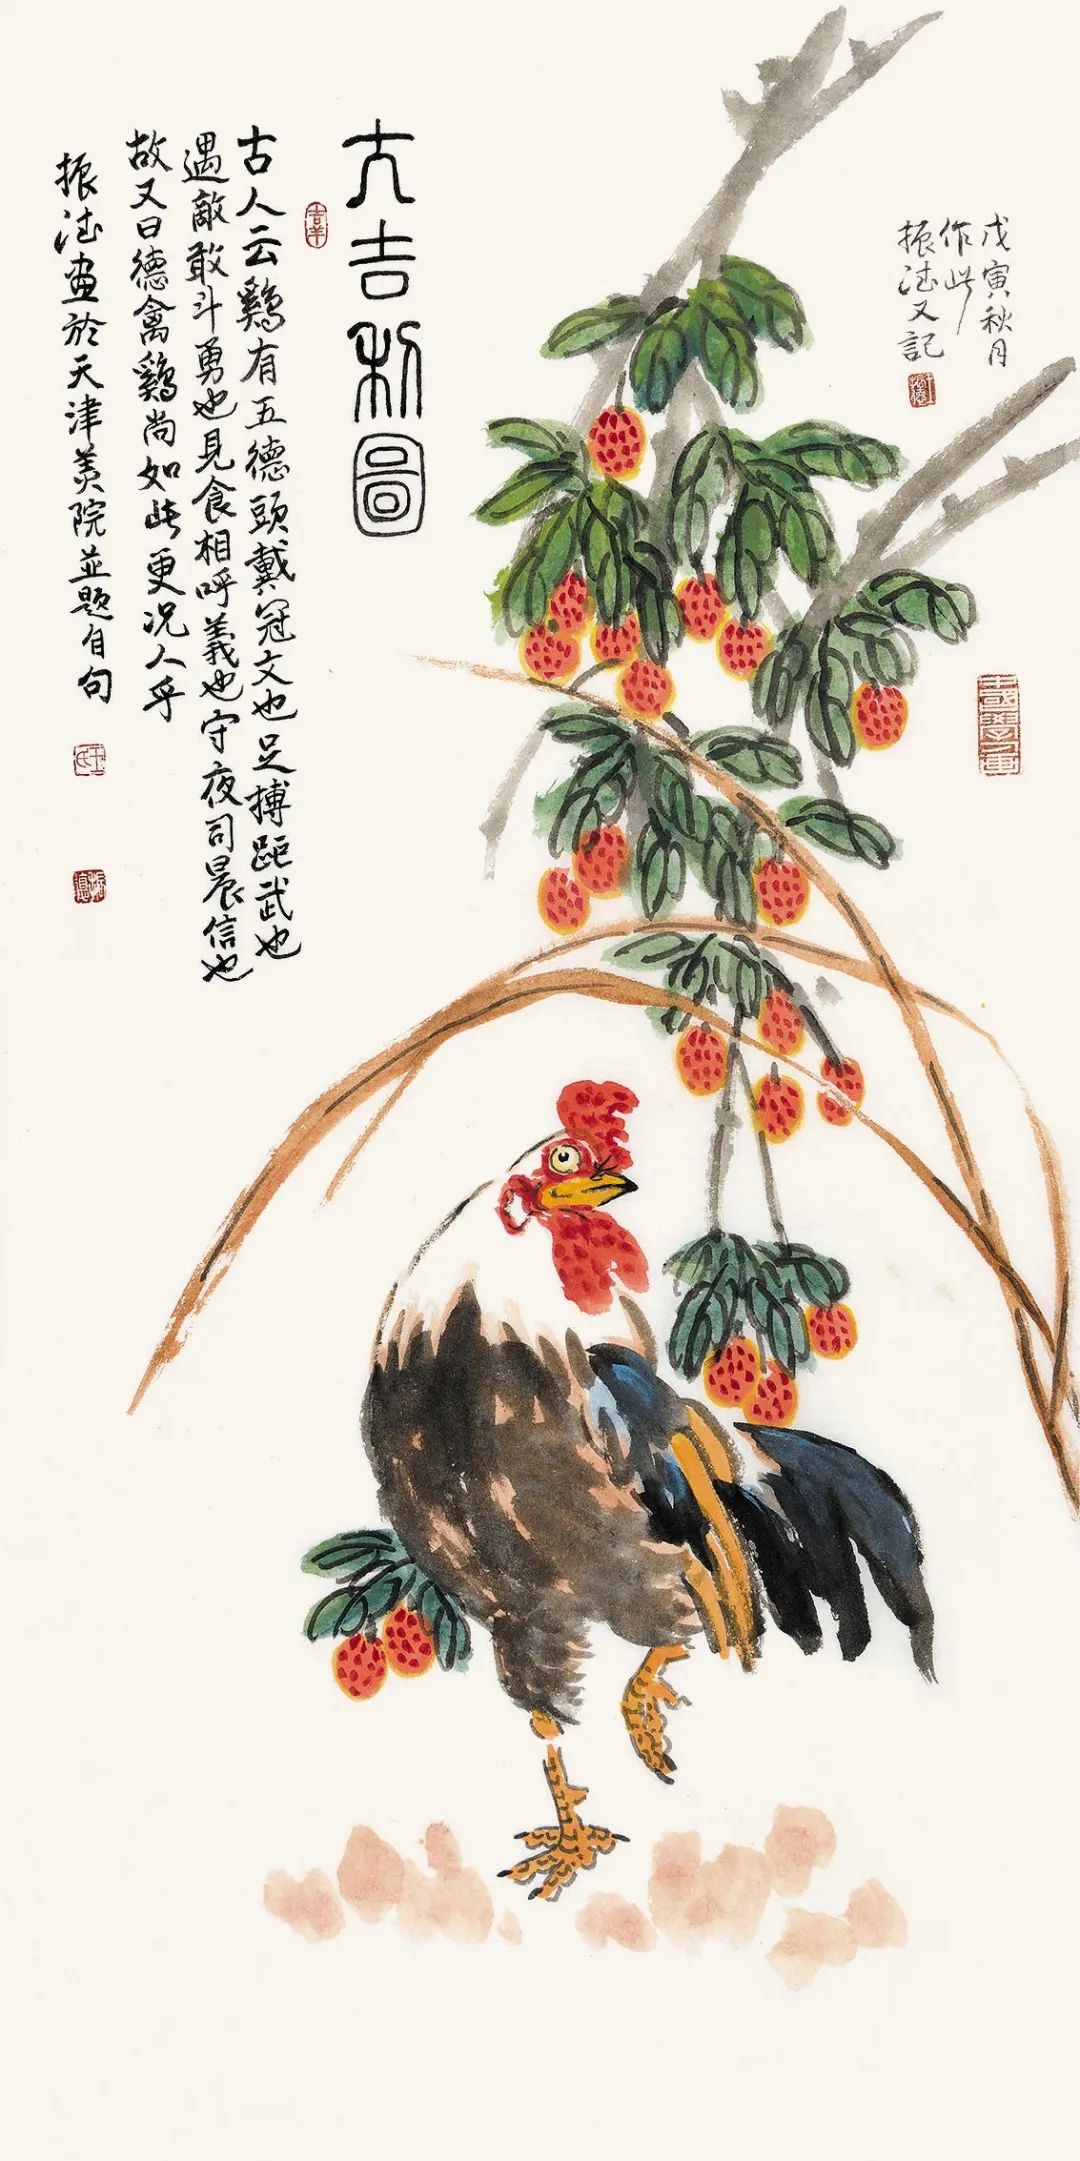 大吉利圖
吉羊
古人云鷄有五德頭戴冠文也足搏距武也
遇敵敢斗勇也見食相呼義也守夜司晨信也
故又曰德禽鷄尚如此更况人乎
振德畫於天津美院並題自句
王氏
振德
戊寅秋月
作此
振德又記